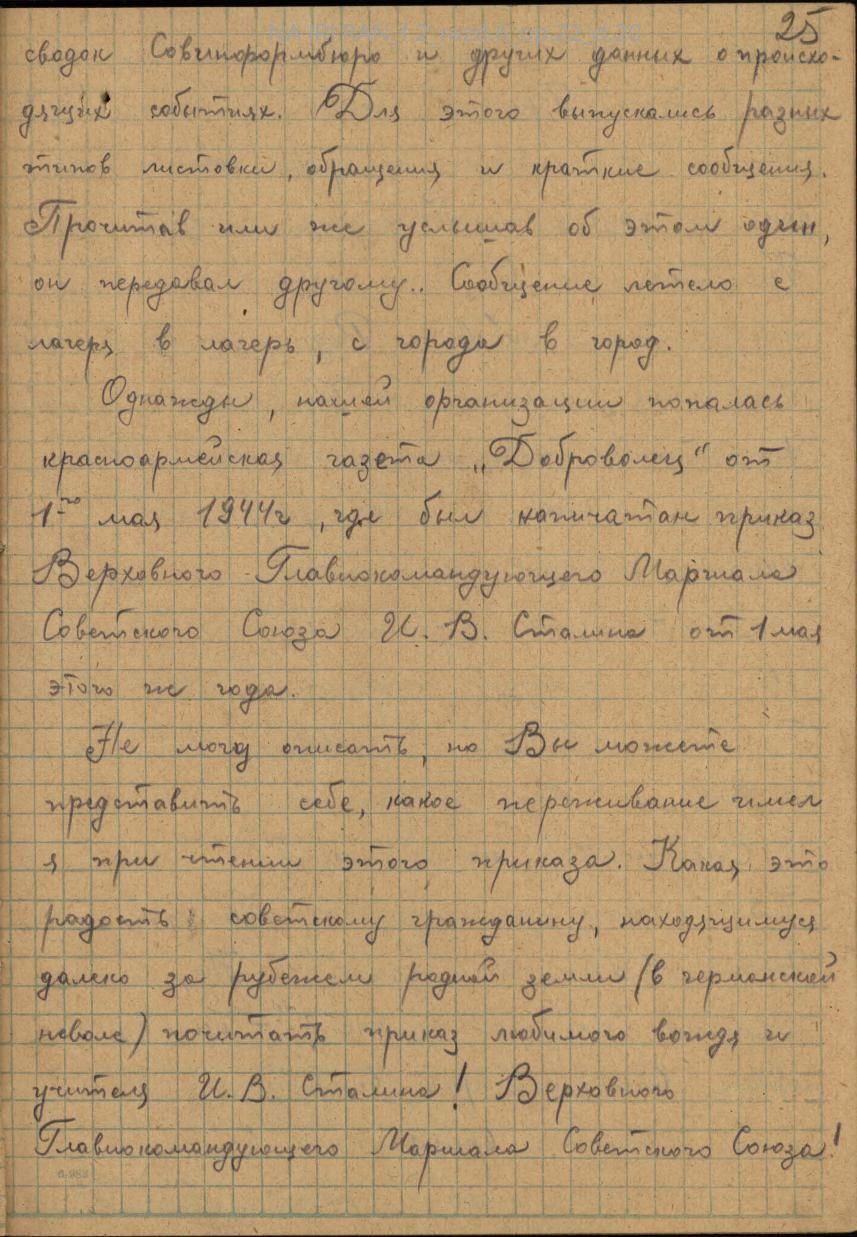 25
сводок Совинформбюро и других данных о происхо-
дящих событиях. Для этого выпускались разных
типов листовки, обращения и краткие сообщения.
Прочитав или же услышав об этом один,
он передавал другому.. Сообщение летело с
лагеря в лагерь, с города в город.
Однажды, нашей организации попалась
красноармейская газета „Доброволец" от
1-го мая 1944г, где был напичатан приказ
Верховного Главнокомандующего Маршала
Советского Союза И. В. Сталина от 1 мая
этого же года.
Не могу описать, но Вы можете
представить себе, какое переживание имел
я при чтении этого приказа. Какая это
радость советскому гражданину, находящимуся
далеко за рубежем родной земли (в германской
неволе) почитать приказ любимого вождя и
учителя И. В. Сталина! Верховного
Главнокомандующего Маршала Советского Союза!